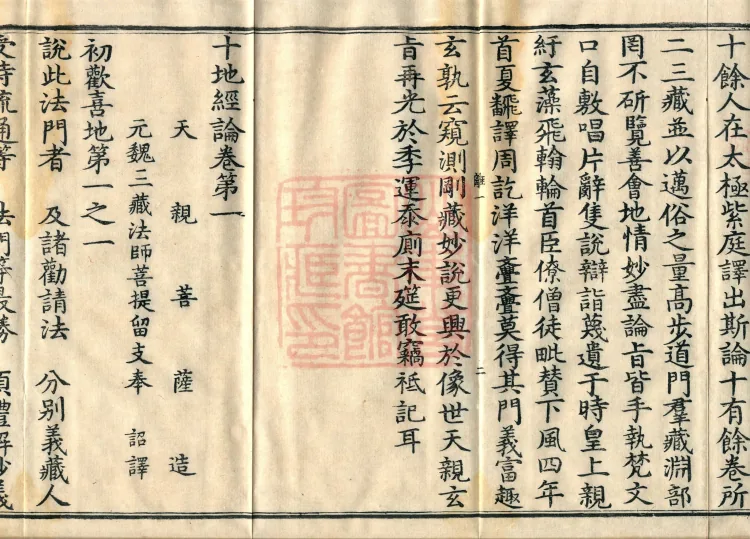 十餘人在太極紫庭譯出斯論十有餘卷所
二三藏並以邁俗之量高步道門羣藏淵部
罔不硏覽善會地情妙盡論旨皆手執梵文
口自敷唱片辭隻說辯詣蔑遺于時皇上親
紆玄藻飛翰輪首臣僚僧徒毗賛下風四年
首夏飜譯周訖洋洋亹亹莫得其門義富趣
離一 二
玄孰云窺測剛藏妙說更興於像世天親玄
旨再光於季運忝廁末筵敢竊祗記耳
十地經論卷第一
天親菩薩造
元魏三藏法師菩提留支奉 詔譯
初歡喜地第一之一
說此法門者 及諸勸請法 分別義藏人
受持流通等 法門等最勝 頂禮解妙義